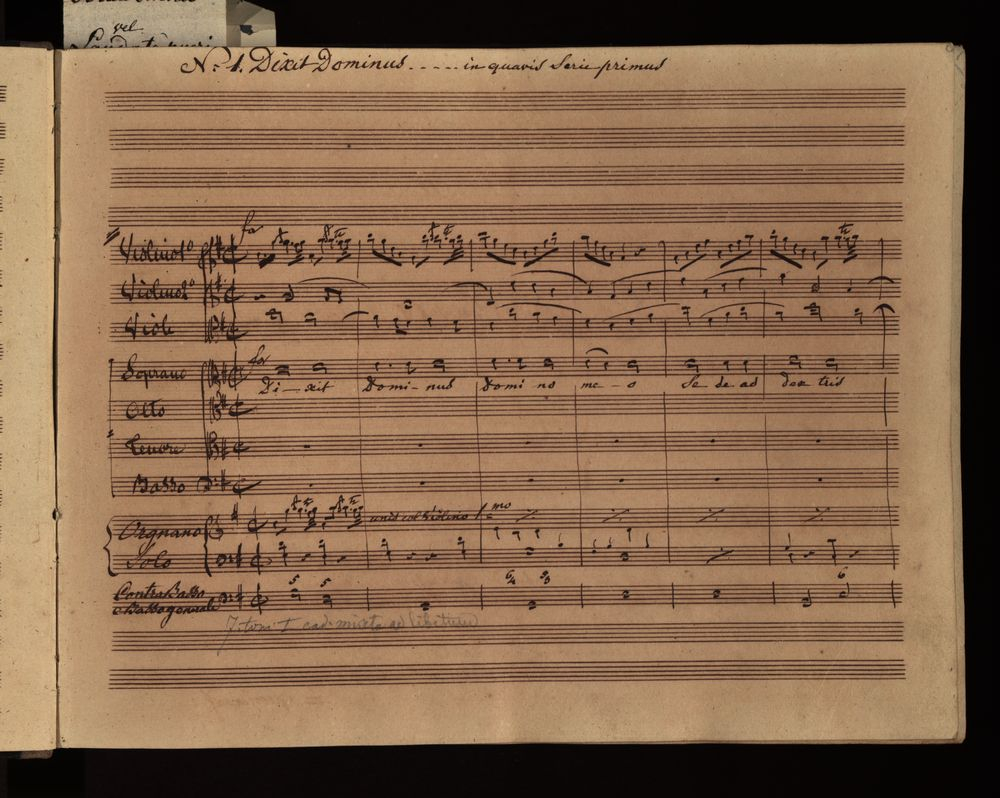 vel
Laudate pueri
No. 1. Dixit Dominus ..... in quavis Serie primus
Violino 1o
Violino 2o
Viole
Soprano
Di - xit Domi - nus Domi no me - o Se de ad dex tris
Alto
Tenore
Basso
Orgnano
Solo
unis col Violino 1mo
5 5 6/4 5/3 6
ContraBasso
e Basso generale
7. toni I cad. mixta ad libitum